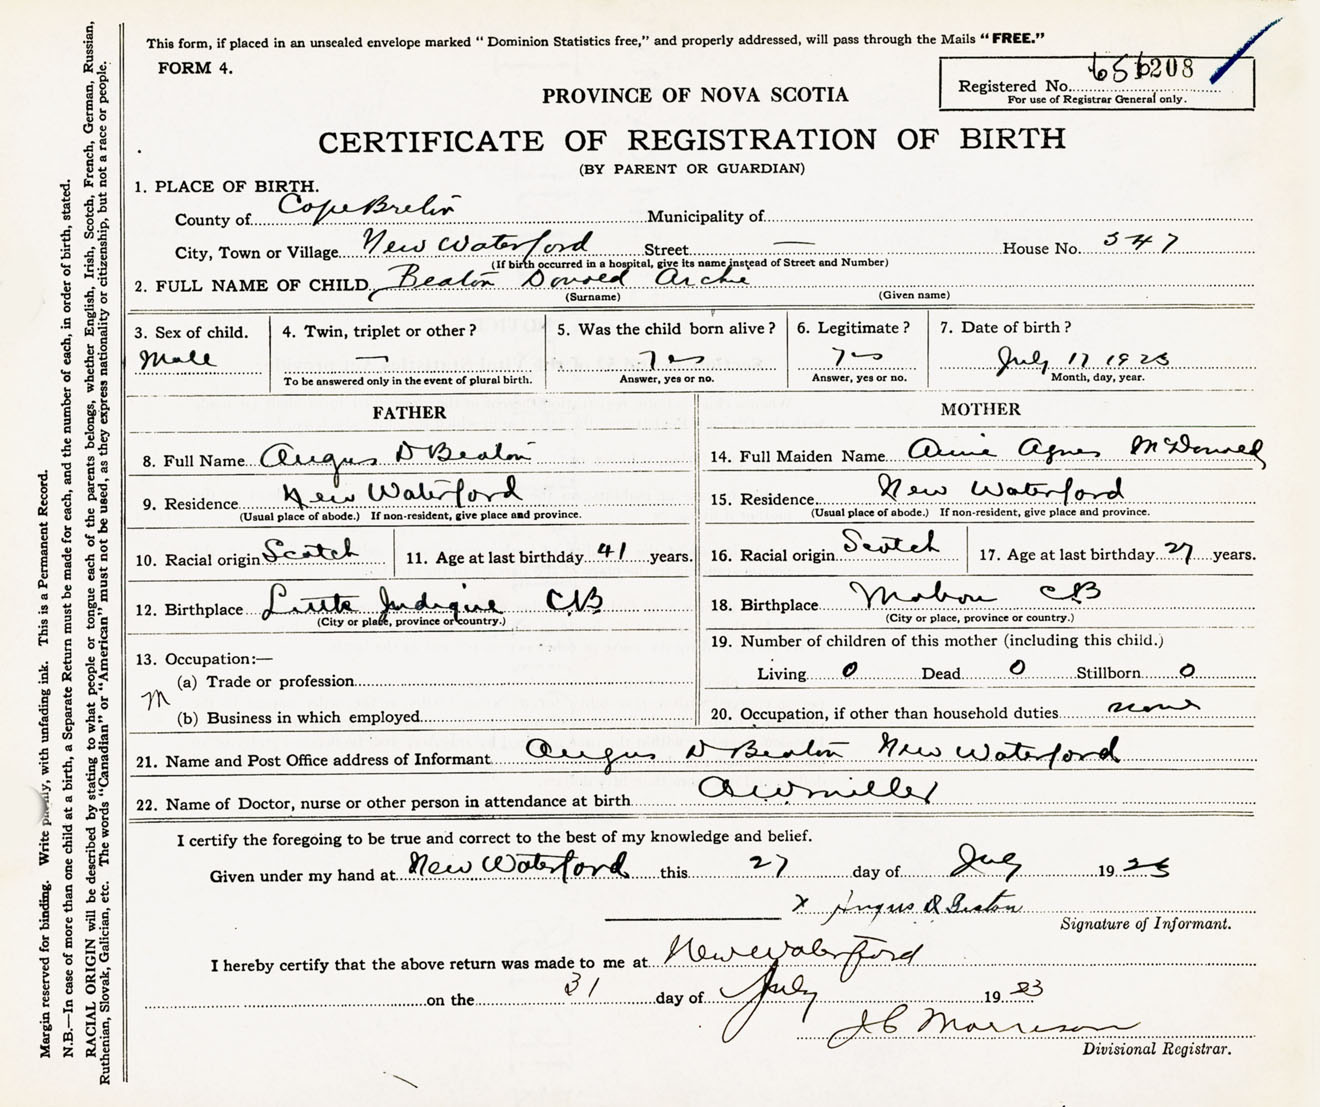 This form, if placed in an unsealed envelope marked “Dominion Statistics free,” and properly addressed, will pass through the Mails “FREE.”
FORM 4.
Registered No. 656208
For use of Registrar General only.
PROVINCE OF NOVA SCOTIA
CERTIFICATE OF REGISTRATION OF BIRTH
(BY PARENT OR GUARDIAN)
1. PLACE OF BIRTH.
County of Cape Breton Municipality of
City, Town or Village New Waterford Street — House No. 347
(If birth occurred in a hospital, give its name instead of Street and Number)
2. FULL NAME OF CHILD Beaton Donald Archie
(Surname) (Given name)
3. Sex of child. 4. Twin, triplet or other? 5. Was the child born alive? 6. Legitimate? 7. Date of birth?
Male — Yes Yes July 17 1923
To be answered only in the event of plural birth. Answer, yes or no. Answer, yes or no. Month, day, year.
FATHER
8. Full Name Angus D Beaton
9. Residence New Waterford
(Usual place of abode.) If non-resident, give place and province.
10. Racial origin Scotch 11. Age at last birthday 41 years.
12. Birthplace Little Judique CB
(City or place, province or country.)
13. Occupation:—
(a) Trade or profession
M
(b) Business in which employed
MOTHER
14. Full Maiden Name Annie Agnes McDonnell
15. Residence New Waterford
(Usual place of abode.) If non-resident, give place and province.
16. Racial origin Scotch 17. Age at last birthday 27 years.
18. Birthplace Mabou CB
(City or place, province or country.)
19. Number of children of this mother (including this child.)
Living 0 Dead 0 Stillborn 0
20. Occupation, if other than household duties none
21. Name and Post Office address of Informant Angus D Beaton New Waterford
22. Name of Doctor, nurse or other person in attendance at birth A W Miller
I certify the foregoing to be true and correct to the best of my knowledge and belief.
Given under my hand at New Waterford this 27 day of July 1923
x Angus D Beaton
Signature of Informant.
I hereby certify that the above return was made to me at New Waterford
on the 31 day of July 1923
J C Morrison
Divisional Registrar.
Margin reserved for binding. Write plainly, with unfading ink. This is a Permanent Record.
N.B.—In case of more than one child at a birth, a Separate Return must be made for each, and the number of each, in order of birth, stated.
RACIAL ORIGIN will be described by stating to what people or tongue each of the parents belongs, whether English, Irish, Scotch, French, German, Russian,
Ruthenian, Slovak, Galician, etc. The words “Canadian” or “American” must not be used, as they express nationality or citizenship, but not a race or people.